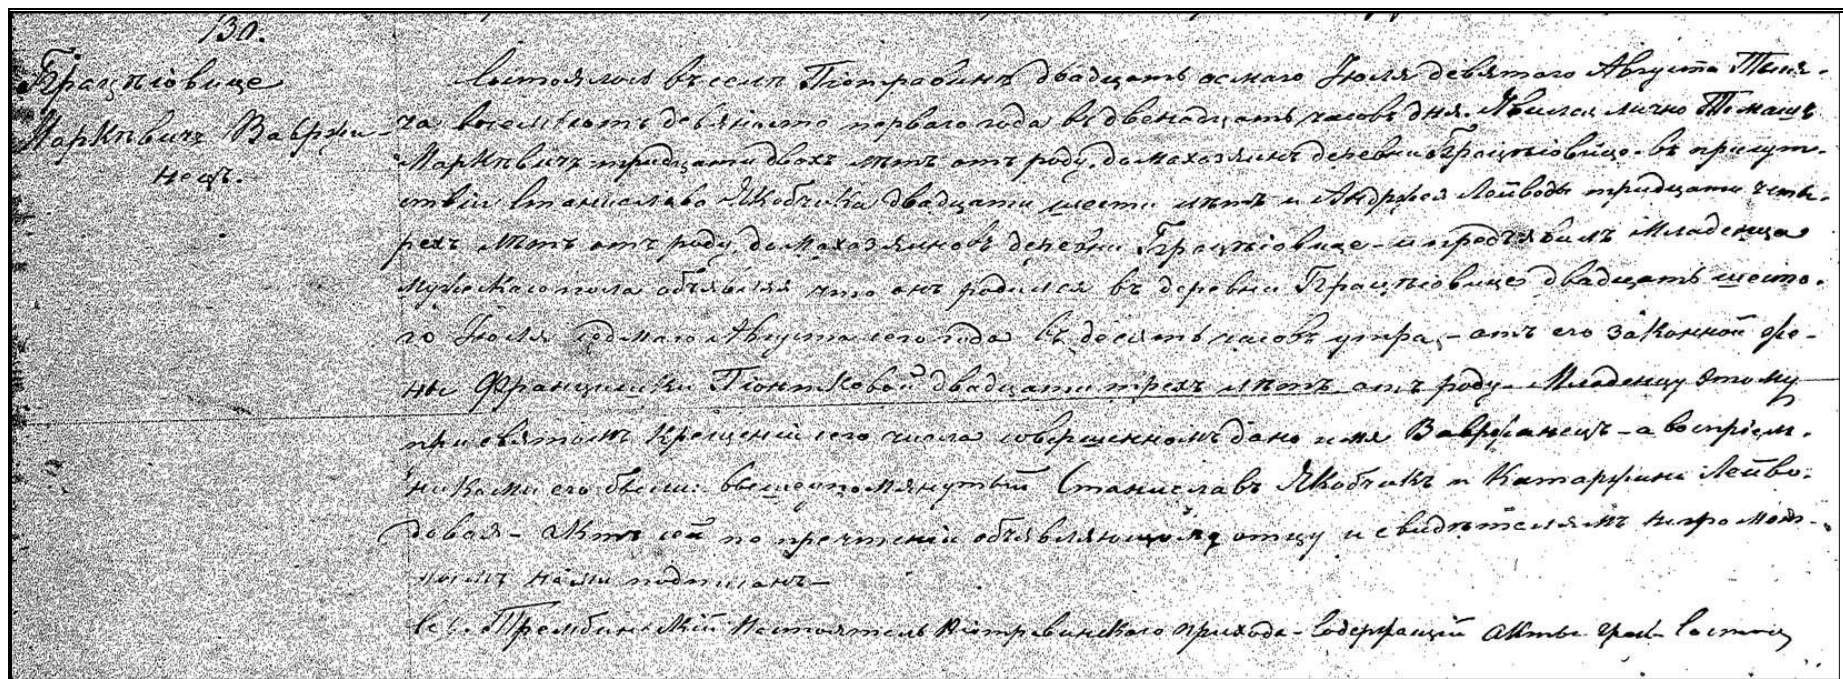 130.
Грацѣовице
Маркѣвичъ Вавржи-
нецъ.
Состоялось въ селѣ Піотравинѣ двадцать осмаго Іюля девятаго Августа Тыся-
ча восемьсотъ девяносто перваго года въ двенадцать часовъ дня. Явился лично Томашъ
Маркѣвичъ тридцати двохъ лѣтъ отъ роду, домохозяинъ деревни Грацѣовице въ присут-
ствіи Станислава Якобчика двадцати шести лѣтъ и Андржея Лейводы тридцати четы-
рехъ лѣтъ отъ роду, домохозяиновъ деревни Грацѣовице - и предъявилъ Младенца
мужескаго пола объявляя что онъ родился въ деревни Грацѣовице двадцать шесто-
го Іюля седмаго Августа сего года въ десять часовъ утра, - отъ его законной же-
ны Францишки Піонтковой двадцати трехъ лѣтъ отъ роду - Младенцу этому
при святомъ крещеніи сего числа совершенномъ дано имя Вавржинецъ - а воспріем-
никами его были: вышеупомянутый Станиславъ Якобчикъ и Катаржина Лейво-
довая - Актъ сей по прочтеніи объявляющему отцу и свидѣтелямъ неграмот-
нымъ нами подписанъ -
Трембинскій Настоятель Піотравинскаго прихода - Содержащій акты граж. Состоя